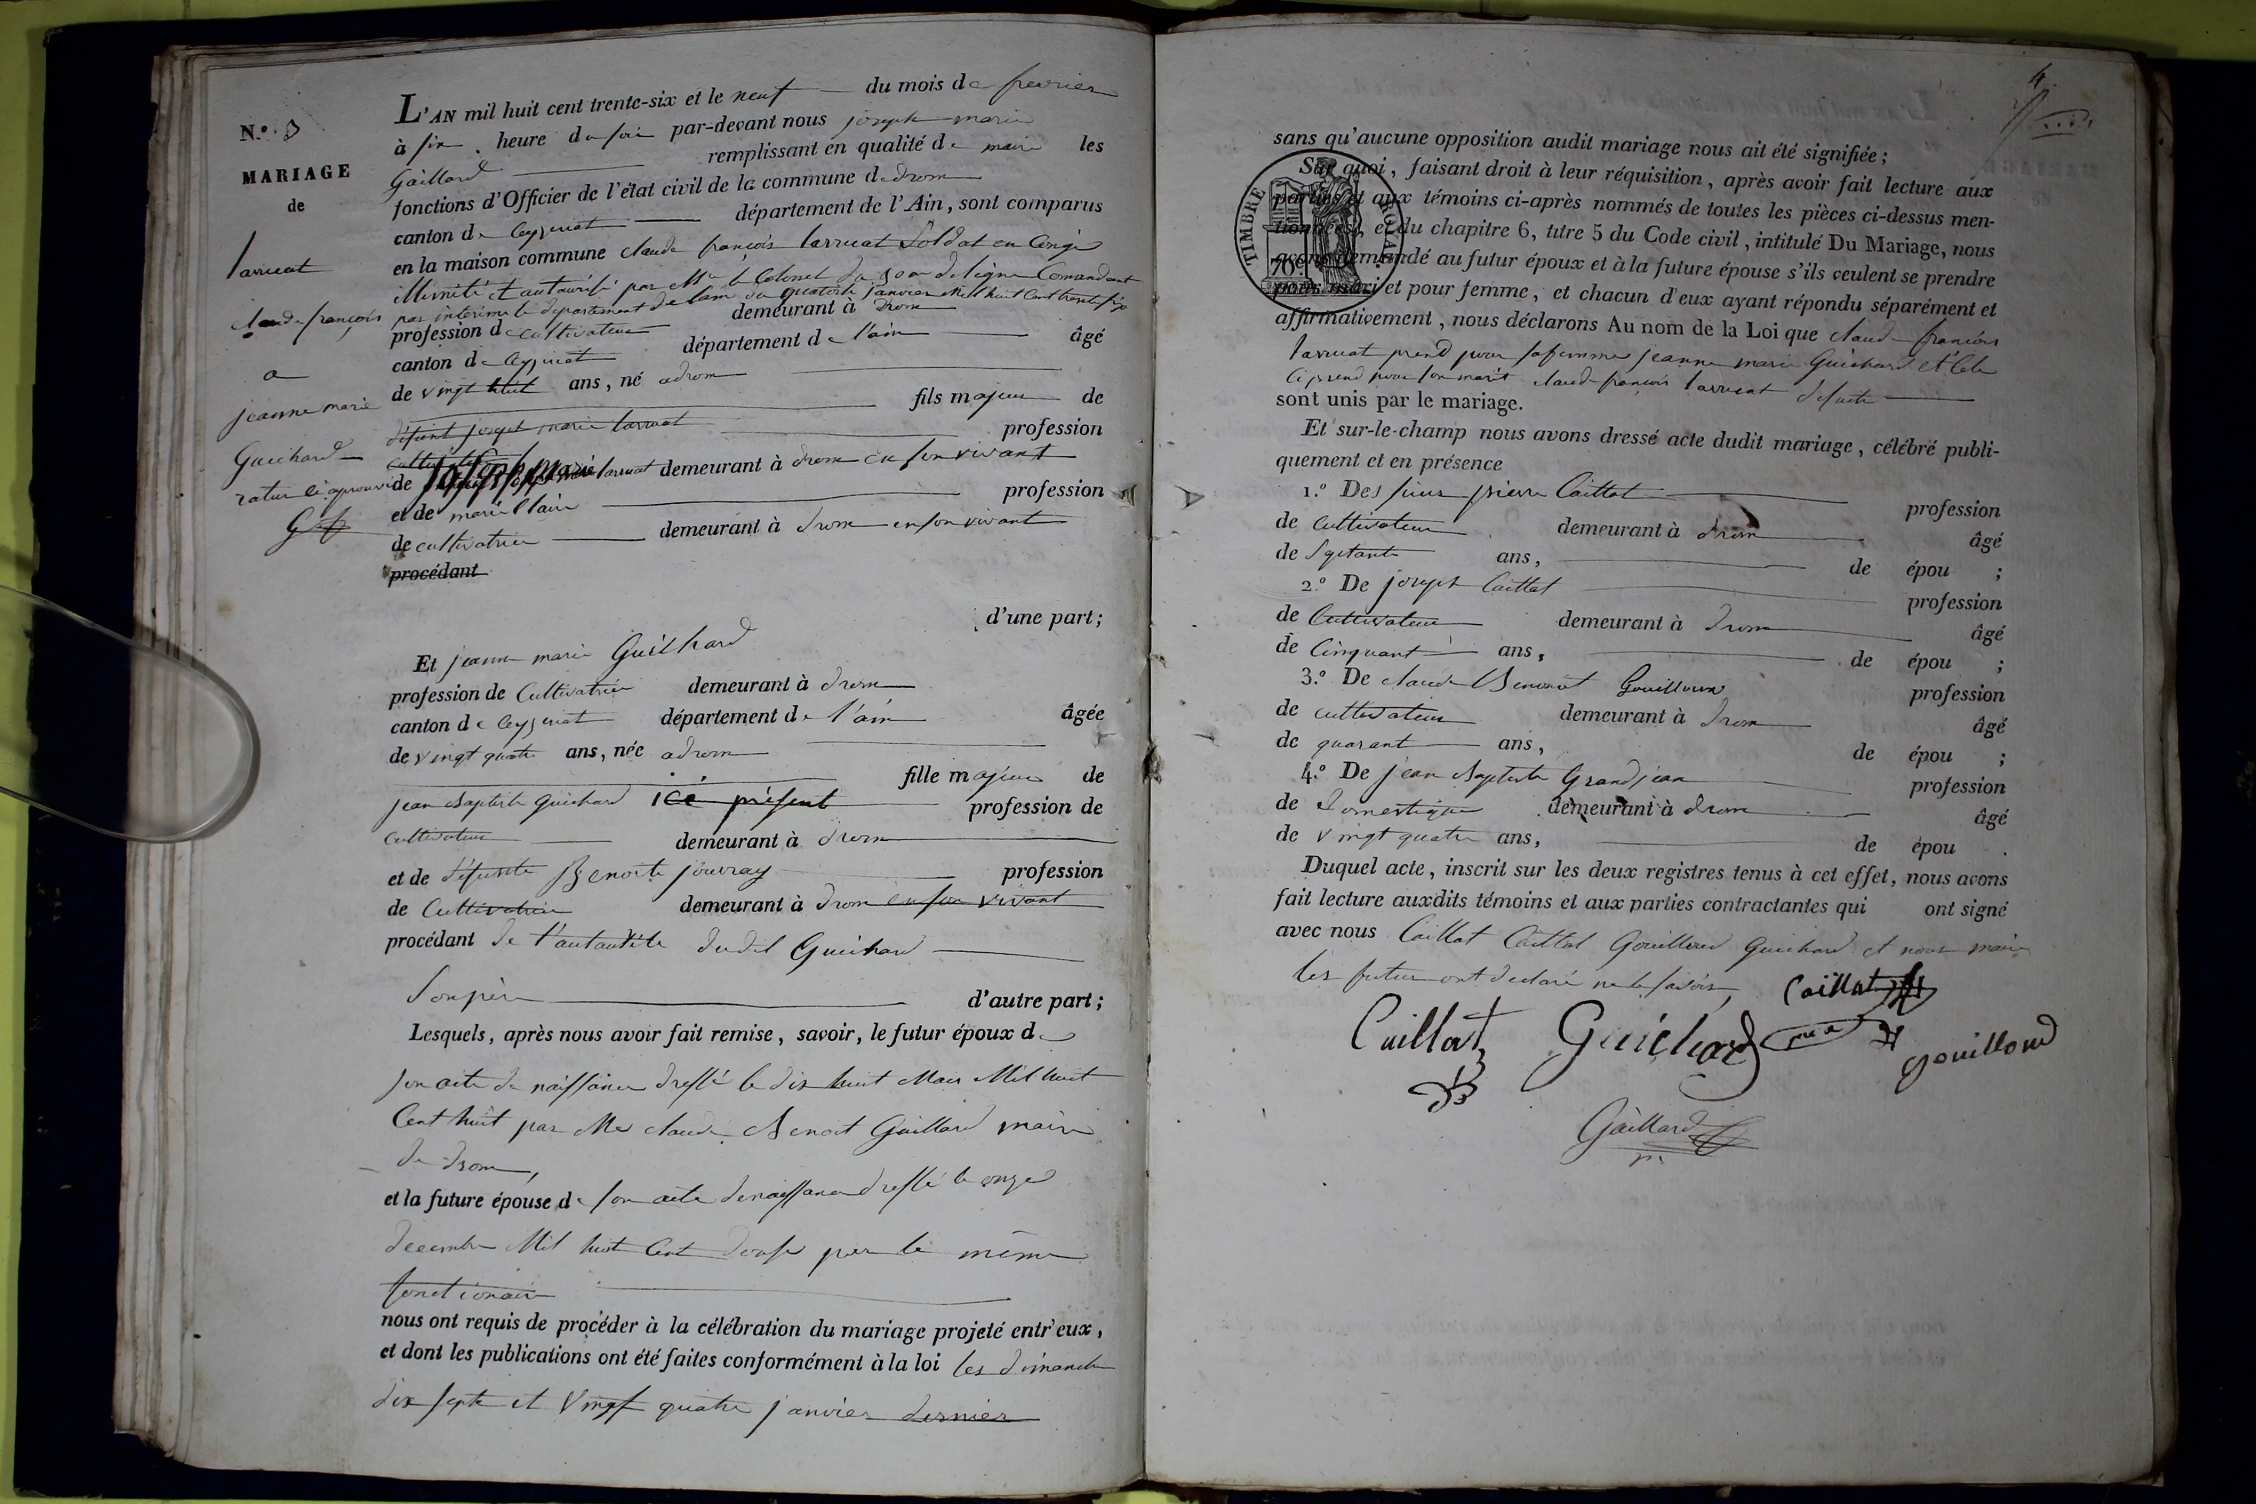 N.º 3
MARIAGE
de
Larruat
claude françois
a
jeanne marie
Guichard
L'AN mil huit cent trente-six et le neuf du mois de fevrier
à six heure du soir par-devant nous joseph marie
Gaillard remplissant en qualité de maire les
fonctions d'Officier de l'état civil de la commune de drom
canton de Ceyzeriat département de l'Ain, sont comparus
en la maison commune claude françois Larruat Soldat en Congé
illimité et autaurisé par Mr le Colonel du de ligne Comandant
par interim le departement de lain du quatorze janvier mil huit Cent trente six
profession de cultivateur demeurant à Drom
canton de Ceyzeriat département de l'ain âgé
de vingt huit ans, né a drom
fils majeur de
défunt joseph marie larruat profession
de joseph marie larruat demeurant à drom en son vivant
et de marie Clair profession
de cultivatrice demeurant à drom en son vivant
procédant
d'une part;
Et jeanne marie Guichard
profession de Cultivatrice demeurant à drom
canton de Ceyzeriat département de l'ain âgée
de vingt quatre ans, née a drom
fille majeure de
jean Baptiste guichard ici présent profession de
cultivateur demeurant à drom
et de défunte Benoite jouvray profession
de Cultivatrice demeurant à drom en son vivant
procédant de l'autaurité dudit Guichard
Son père d'autre part;
Lesquels, après nous avoir fait remise, savoir, le futur époux de
son acte de naissance dressé le dix huit Mars Mil huit
Cent huit par Mr claude Benoit Gaillard maire
de drom,
et la future épouse de son acte de naissance dressé le onze
decembre Mil huit Cent douse par le même
fonctionaire
nous ont requis de procéder à la célébration du mariage projeté entr'eux,
et dont les publications ont été faites conformément à la loi les dimanche
dix sept et vingt quatre janvier dernier
4
sans qu'aucune opposition audit mariage nous ait été signifiée;
Sur quoi, faisant droit à leur réquisition, après avoir fait lecture aux
parties et aux témoins ci-après nommés de toutes les pièces ci-dessus men-
tionnées, et du chapitre 6, titre 5 du Code civil, intitulé Du Mariage, nous
avons demandé au futur époux et à la future épouse s'ils veulent se prendre
pour mari et pour femme, et chacun d'eux ayant répondu séparément et
affirmativement, nous déclarons Au nom de la Loi que claude françois
Larruat prend pour sa femme jeanne marie Guichard et Celle
ci prend pour son marit claude françois larruat
sont unis par le mariage.
TIMBRE ROYAL
70c
Et sur-le-champ nous avons dressé acte dudit mariage, célébré publi-
quement et en présence
1.º Des sieur pierre Caillat profession
de cultivateur demeurant à drom âgé
de Septante ans, de épou ;
2.º De joseph Caillat profession
de Cultivateur demeurant à Drom âgé
de Cinquant ans, de épou ;
3.º De claude Benonit Gouilloux profession
de cultivateur demeurant à drom âgé
de quarant ans, de épou ;
4.º De jean Baptiste Grandjean profession
de Domestique demeurant à drom âgé
de vingt quatre ans, de épou .
Duquel acte, inscrit sur les deux registres tenus à cet effet, nous avons
fait lecture auxdits témoins et aux parties contractantes qui ont signé
avec nous Caillat Caillat Gouilloud Guichard et nous maire
les futur ont declaré ne le savoir,
Caillat
Caillat
Guichard
gouilloud
Gaillard
m